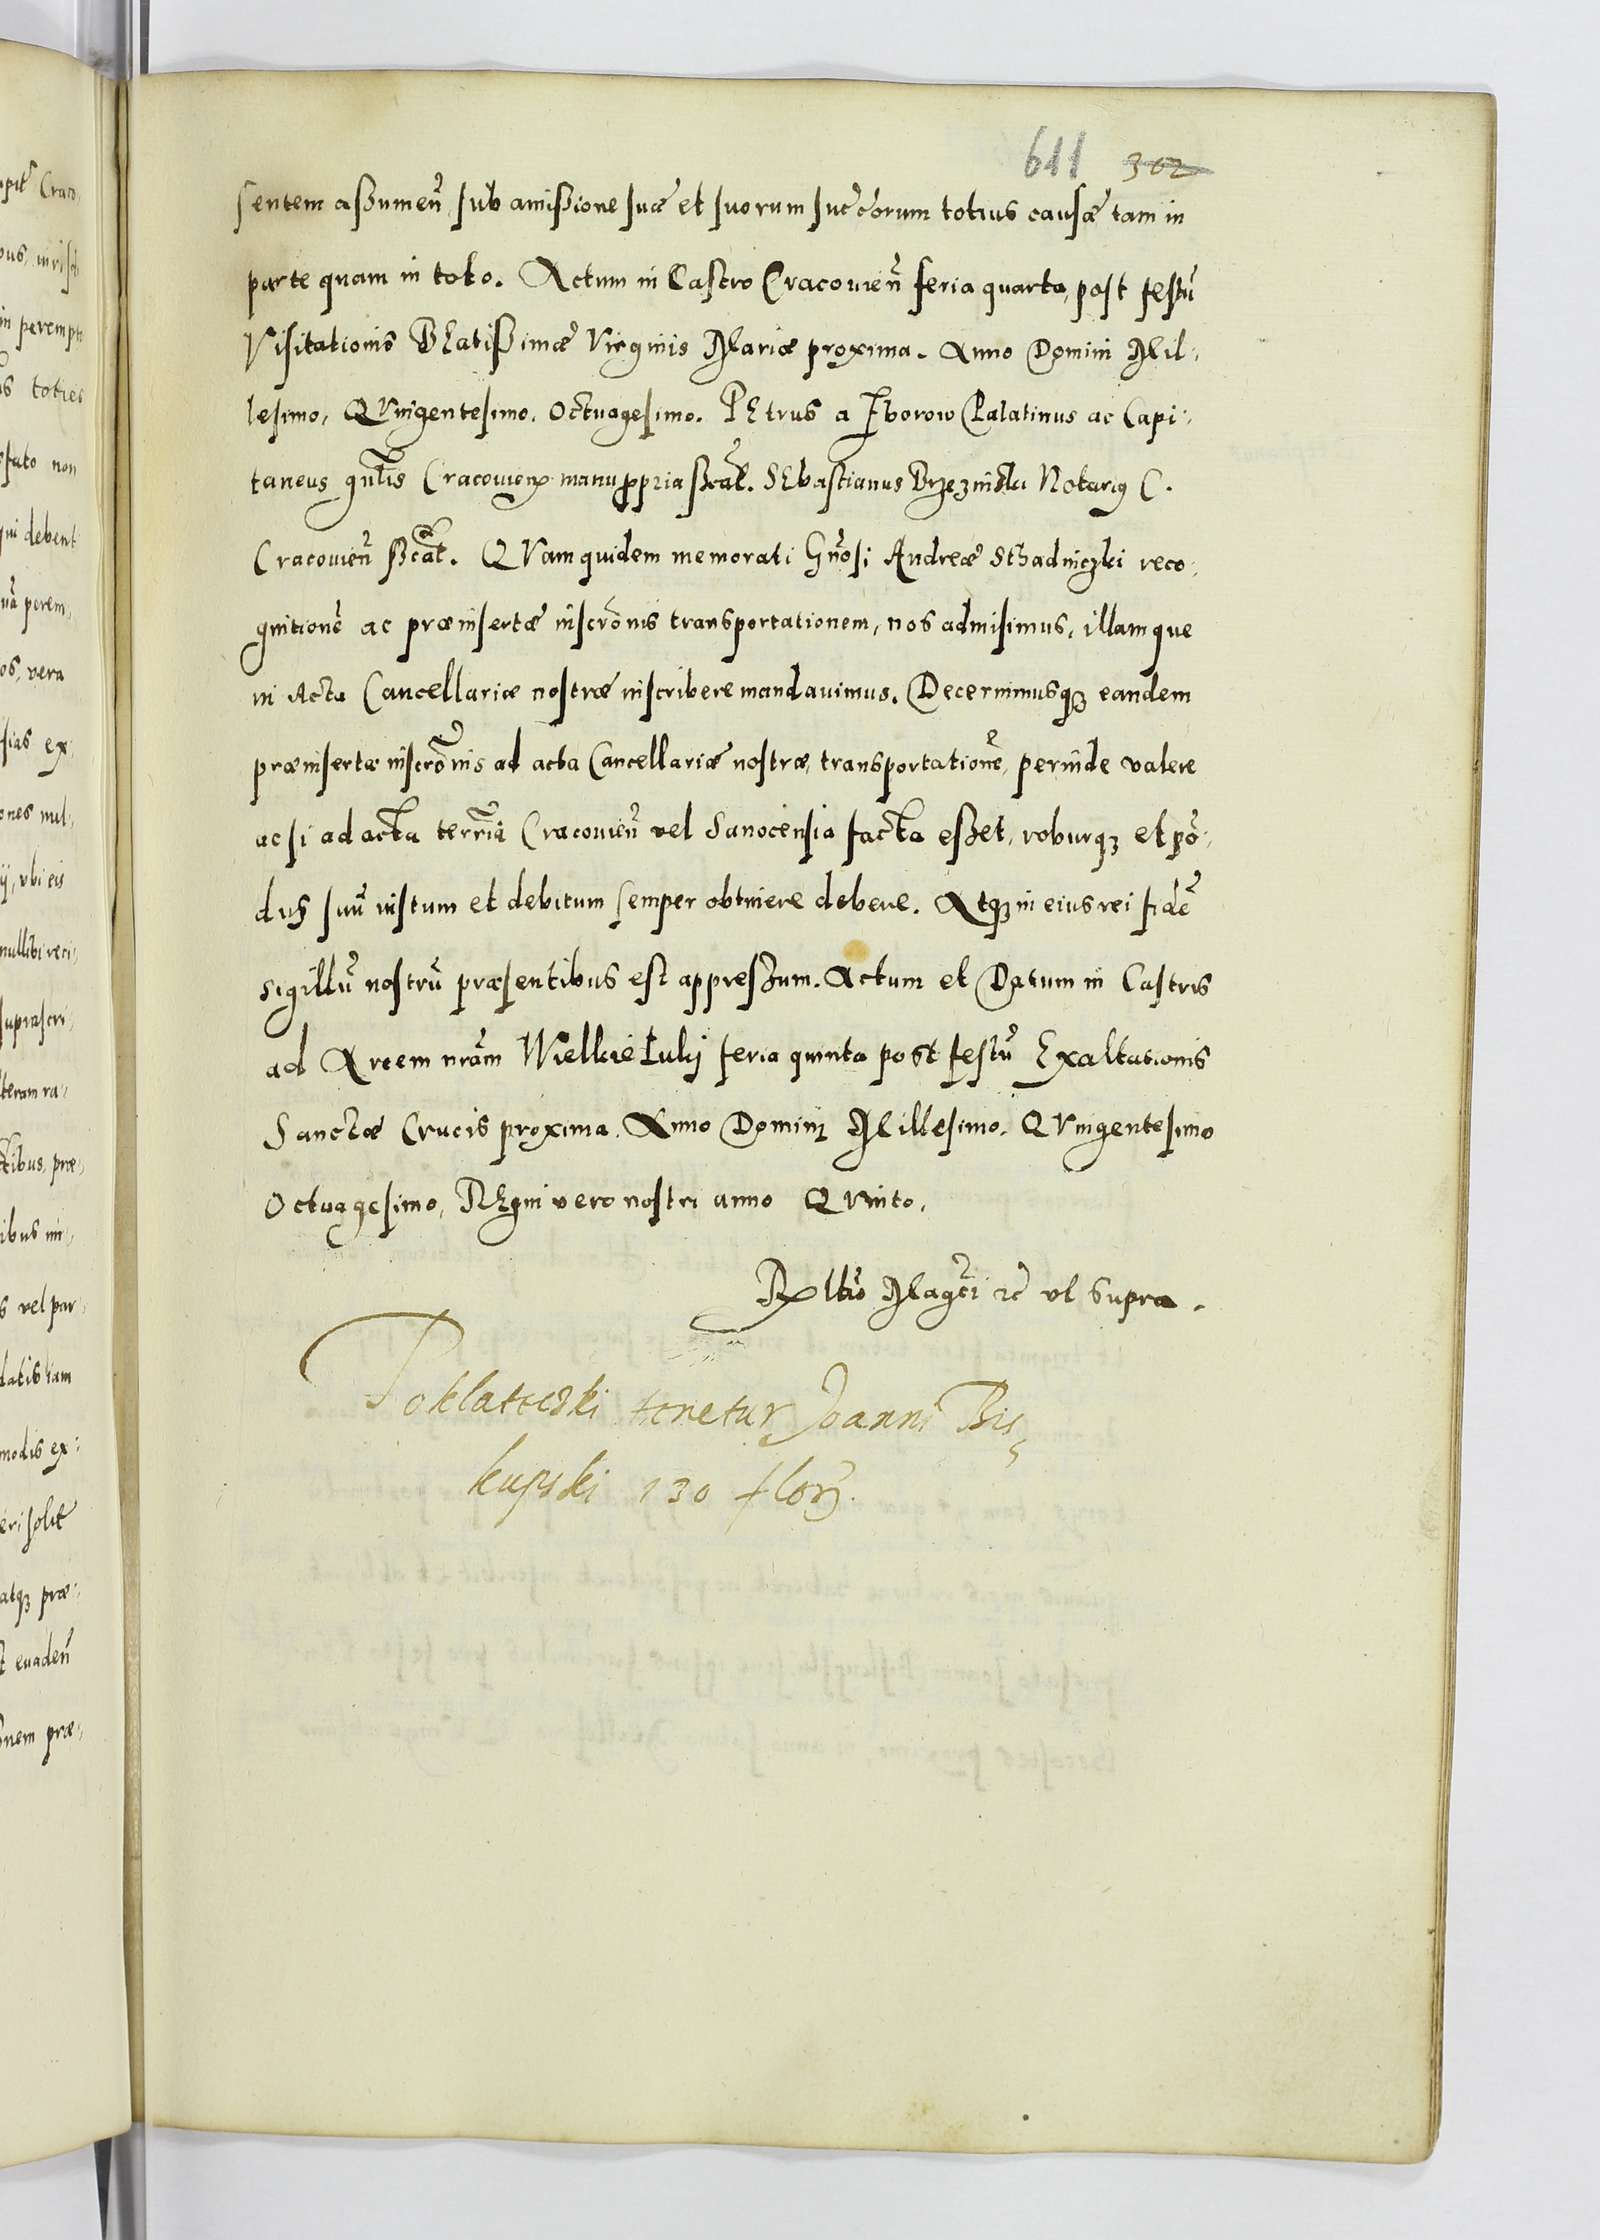 611 302
sentem assumeñ sub amissione suæ et suorum succ̃orum totius causæ tam in
parte quam in toto. Actum in Castro Cracouieñ feria quarta, post festũ
Visitationis BEatissimæ Virginis Mariæ proxima. Anno Domini Mil-
lesimo, QVingentesimo. Octuagesimo. PEtrus a Zborow Palatinus ac Capi-
taneus gñlis Cracouieñ manu ppria sscrat. SEbastianus Brzezinski Notariꝰ C.
Cracouieñ sscrat. QVam quidem memorati Gñosi Andreæ Sthadniczki reco-
gnitionẽ ac præinsertæ inscrõnis transportationem, nos admisimus, illamque
in Acta Cancellariæ nostræ inscribere mandauimus. Decernimusqꝫ eandem
præinsertæ inscrõnis ad acta Cancellariæ nostræ, transportationẽ, perinde valere
ac si ad acta terrña Cracouieñ vel Sanocensia facta esset, roburqꝫ et põ-
dus suũ iustum et debitum semper obtinere debere. Atqꝫ in eius rei fidẽ
sigillũ nostrũ præsentibus est appressum. Actum et Datum in Castris
ad Arcem nrãm Wielkie Luki feria quinta post festũ Exaltationis
Sanctæ Crucis proxima. Anno Domini Millesimo. QVingentesimo
Octuagesimo, REgni vero nostri anno QVinto.
Rltio Magci ꝛc vt supra.
Poklateczki tenetur Joanni Bis-
kupski 130 flor.